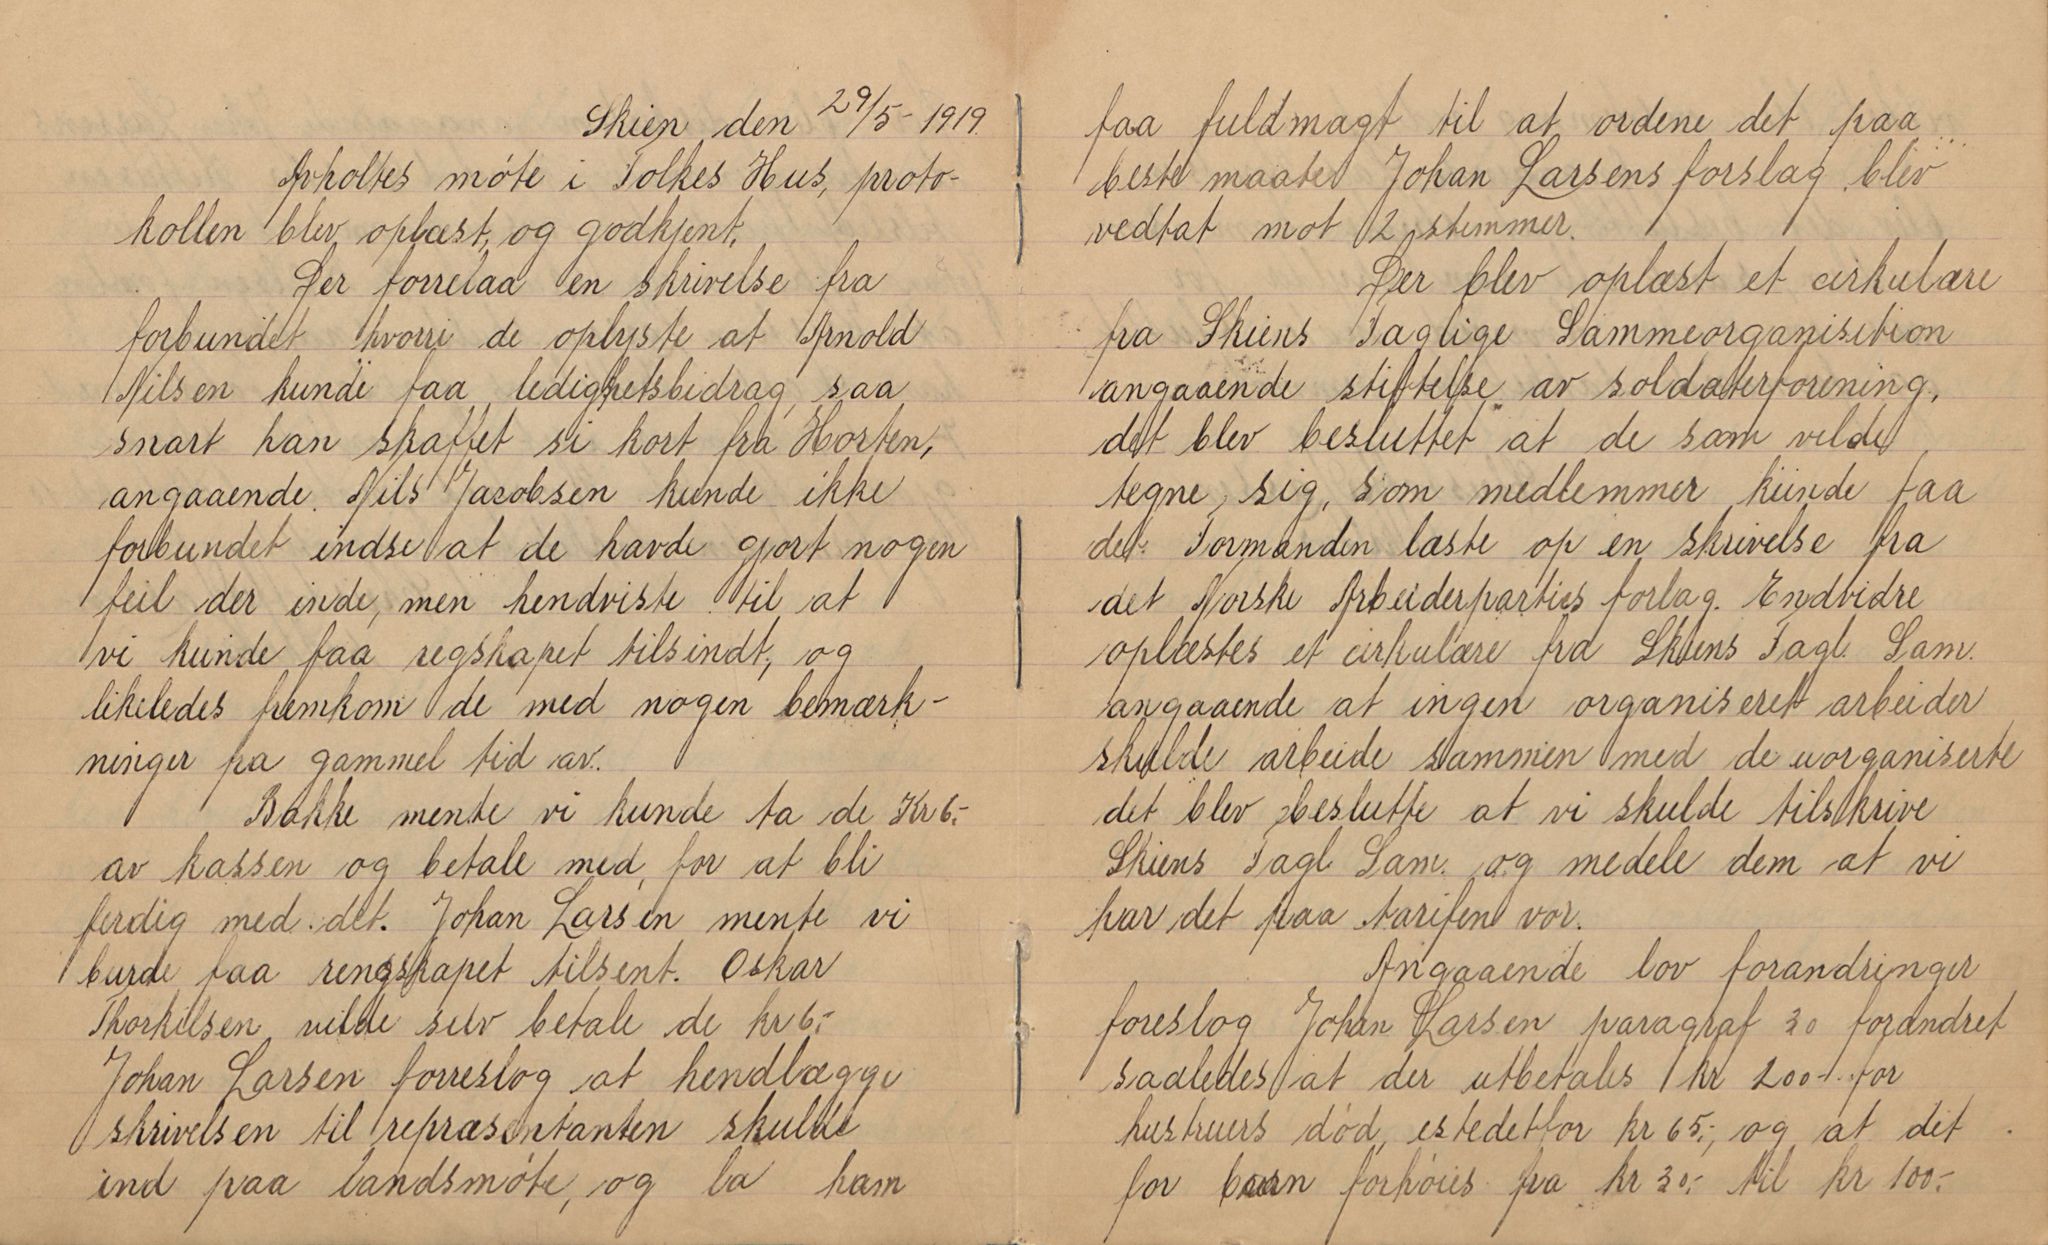 Skien den 29/5-1919.
Avholtes móte i Folkes Hus, proto-
kollen blev oplæst, og godkjent.
Der forrelaa en skrivelse fra
forbundet hvorri de oplyste at Arnold
Nilsen kunde faa ledighetsbidrag, saa
snart han skaffet si kort fra Horten,
angaaende. Nils Jacobsen kunde ikke
forbundet indse at de havde gjort nogen
feil der inde, men hendviste til at
vi kunde faa regskapet tilsindt, og
likeledes fremkom de med nogen bemærk-
ninger pa gammel tid av.
Bakke mente vi kunde ta de Kr 6,-
av kassen og betale med, for at bli
ferdig med det. Johan Larsen mente vi
burde faa rengskapet tilsent. Oskar
Thorkilsen vilde selv betale de kr 6,-
Johan Larsen forreslog at hendlægge
skrivelsen til repræsentanten skulde
ind paa landsmóte, og la ham
faa fuldmagt til at ordene det paa
beste maate. Johan Larsens forslag blev
vedtat mot 2 stemmer.
Der blev oplæst et cirkulære
fra Skiens Faglige Sammeorganisition
angaaende stiftelse av soldaterforening,
det blev besluttet at de som vilde
tegne, sig, som medlemmer kunde faa
det. Formanden læste op en skrivelse fra
det Norske Arbeiderparties forlag. Endvidre
oplæstes et cirkulære fra Skiens Fagl. Sam.
angaaende at ingen organiseret arbeider
skulde arbeide sammen med de uorganiserte
det blev beslutte at vi skulde tilskrive
Skiens Fagl Sam. og medele dem at vi
har det paa tarifen vor.
Angaaende lov forandringer
foreslog Johan Larsen paragraf 30 forandret
saaledes at der utbetales kr 200-. for
hustruers dód, estedetfor kr 65,-, og at det
for barn forhóies fra kr 30,- til kr 100,-